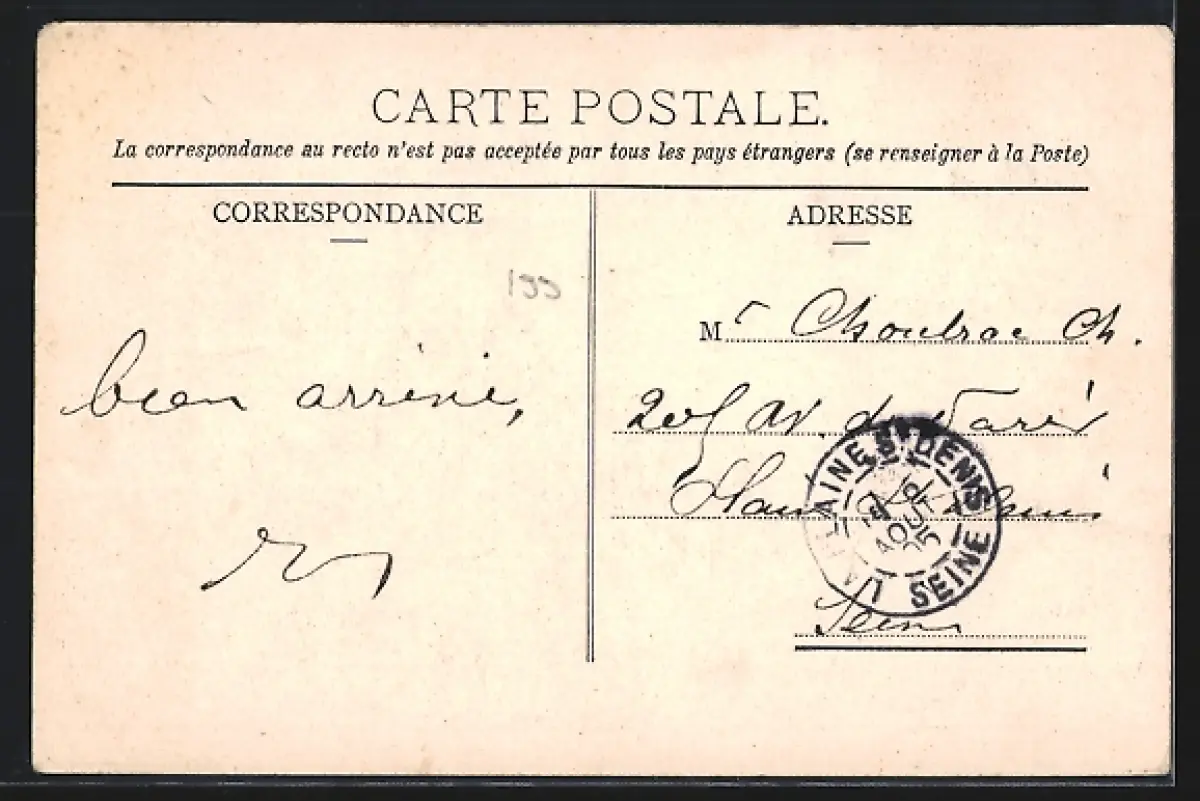 CARTE POSTALE.
La correspondance au recto n'est pas acceptée par tous les pays étrangers (se renseigner à la Poste)
CORRESPONDANCE
bien arrivé,
ADRESSE
M r Choulrac Ch.
Av. de Paris
Plaine St Denis
Seine
LA PLAINE ST DENIS
AOUT
05
SEINE
199